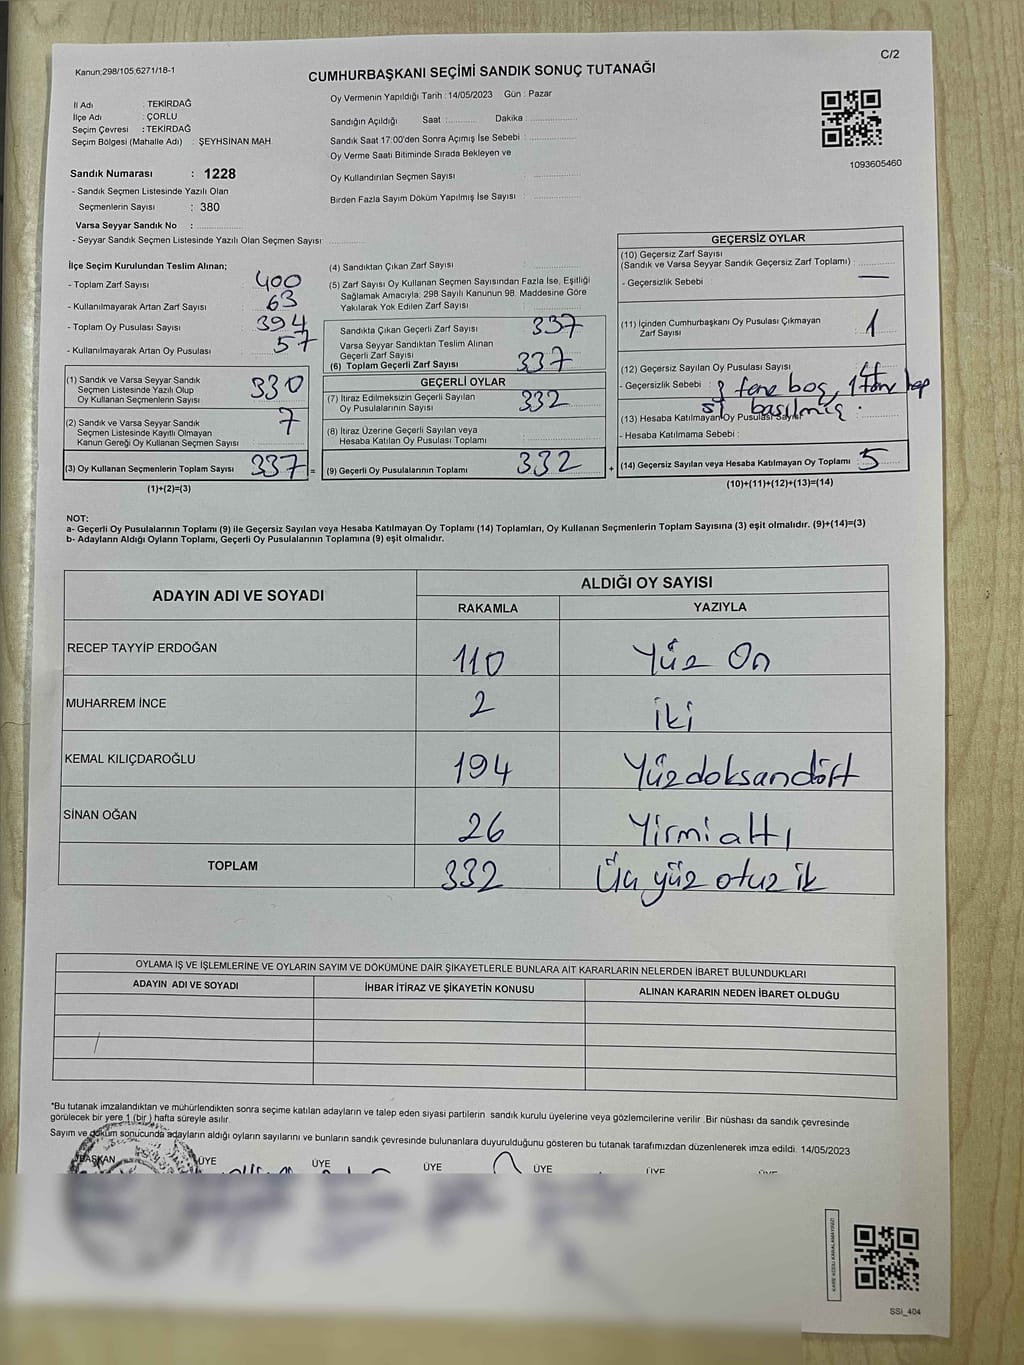 Kanun;298/105;6271/18-1
C/2
CUMHURBAŞKANI SEÇİMİ SANDIK SONUÇ TUTANAĞI
İl Adı : TEKİRDAĞ
İlçe Adı : ÇORLU
Seçim Çevresi : TEKİRDAĞ
Seçim Bölgesi (Mahalle Adı) : ŞEYHSİNAN MAH
Oy Vermenin Yapıldığı Tarih : 14/05/2023 Gün : Pazar
Sandığın Açıldığı Saat : Dakika :
Sandık Saat 17:00'den Sonra Açımış İse Sebebi :
Oy Verme Saati Bitiminde Sırada Bekleyen ve
Oy Kullandırılan Seçmen Sayısı :
Birden Fazla Sayım Döküm Yapılmış İse Sayısı :
1093605460
Sandık Numarası : 1228
- Sandık Seçmen Listesinde Yazılı Olan
Seçmenlerin Sayısı : 380
Varsa Seyyar Sandık No :
- Seyyar Sandık Seçmen Listesinde Yazılı Olan Seçmen Sayısı:
İlçe Seçim Kurulundan Teslim Alınan;
- Toplam Zarf Sayısı : 400
- Kullanılmayarak Artan Zarf Sayısı : 63
- Toplam Oy Pusulası Sayısı : 394
- Kullanılmayarak Artan Oy Pusulası : 57
(1) Sandık ve Varsa Seyyar Sandık
Seçmen Listesinde Yazılı Olup
Oy Kullanan Seçmenlerin Sayısı 330
(2) Sandık ve Varsa Seyyar Sandık
Seçmen Listesinde Kayıtlı Olmayan
Kanun Gereği Oy Kullanan Seçmen Sayısı 7
(3) Oy Kullanan Seçmenlerin Toplam Sayısı 337 =
(1)+(2)=(3)
(4) Sandıktan Çıkan Zarf Sayısı :
(5) Zarf Sayısı Oy Kullanan Seçmen Sayısından Fazla İse, Eşitliği
Sağlamak Amacıyla; 298 Sayılı Kanunun 98. Maddesine Göre
Yakılarak Yok Edilen Zarf Sayısı :
Sandıkta Çıkan Geçerli Zarf Sayısı 337
Varsa Seyyar Sandıktan Teslim Alınan
Geçerli Zarf Sayısı
(6) Toplam Geçerli Zarf Sayısı 337
GEÇERLİ OYLAR
(7) İtiraz Edilmeksizin Geçerli Sayılan
Oy Pusulalarının Sayısı 332
(8) İtiraz Üzerine Geçerli Sayılan veya
Hesaba Katılan Oy Pusulası Toplamı
(9) Geçerli Oy Pusulalarının Toplamı 332 +
GEÇERSİZ OYLAR
(10) Geçersiz Zarf Sayısı
(Sandık ve Varsa Seyyar Sandık Geçersiz Zarf Toplamı) :
- Geçersizlik Sebebi : —
(11) İçinden Cumhurbaşkanı Oy Pusulası Çıkmayan
Zarf Sayısı 1
(12) Geçersiz Sayılan Oy Pusulası Sayısı : 4
- Geçersizlik Sebebi : 3 tane boş, 1 tane hep
si basılmış.
(13) Hesaba Katılmayan Oy Pusulası Sayısı
- Hesaba Katılmama Sebebi :
(14) Geçersiz Sayılan veya Hesaba Katılmayan Oy Toplamı 5
(10)+(11)+(12)+(13)=(14)
NOT:
a- Geçerli Oy Pusulalarının Toplamı (9) ile Geçersiz Sayılan veya Hesaba Katılmayan Oy Toplamı (14) Toplamları, Oy Kullanan Seçmenlerin Toplam Sayısına (3) eşit olmalıdır. (9)+(14)=(3)
b- Adayların Aldığı Oyların Toplamı, Geçerli Oy Pusulalarının Toplamına (9) eşit olmalıdır.
ADAYIN ADI VE SOYADI
ALDIĞI OY SAYISI
RAKAMLA YAZIYLA
RECEP TAYYİP ERDOĞAN 110 Yüz On
MUHARREM İNCE 2 iki
KEMAL KILIÇDAROĞLU 194 Yüzdoksandört
SİNAN OĞAN 26 Yirmialtı
TOPLAM 332 Üç yüz otuz ik
OYLAMA İŞ VE İŞLEMLERİNE VE OYLARIN SAYIM VE DÖKÜMÜNE DAİR ŞİKAYETLERLE BUNLARA AİT KARARLARIN NELERDEN İBARET BULUNDUKLARI
ADAYIN ADI VE SOYADI İHBAR İTİRAZ VE ŞİKAYETİN KONUSU ALINAN KARARIN NEDEN İBARET OLDUĞU
*Bu tutanak imzalandıktan ve mühürlendikten sonra seçime katılan adayların ve talep eden siyasi partilerin sandık kurulu üyelerine veya gözlemcilerine verilir. Bir nüshası da sandık çevresinde
görülecek bir yere 1 (bir ) hafta süreyle asılır.
Sayım ve döküm sonucunda adayların aldığı oyların sayılarını ve bunların sandık çevresinde bulunanlara duyurulduğunu gösteren bu tutanak tarafımızdan düzenlenerek imza edildi. 14/05/2023
BAŞKAN ÜYE ÜYE ÜYE ÜYE ÜYE ÜYE
KARE KODU KARALAMAYINIZ!
SSİ_404